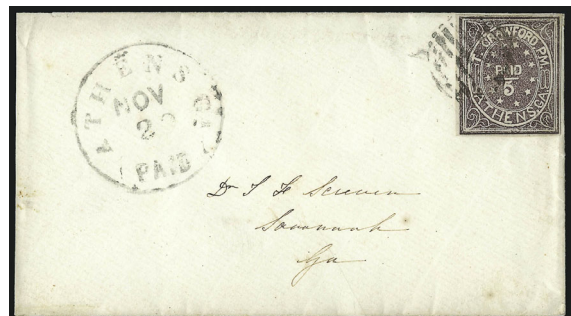 ATHENS Ga
NOV
PAID
T. CRAWFORD. P.M.
PAID
5
ATHENS.GA.
Dr
Screven
Savannah
Ga